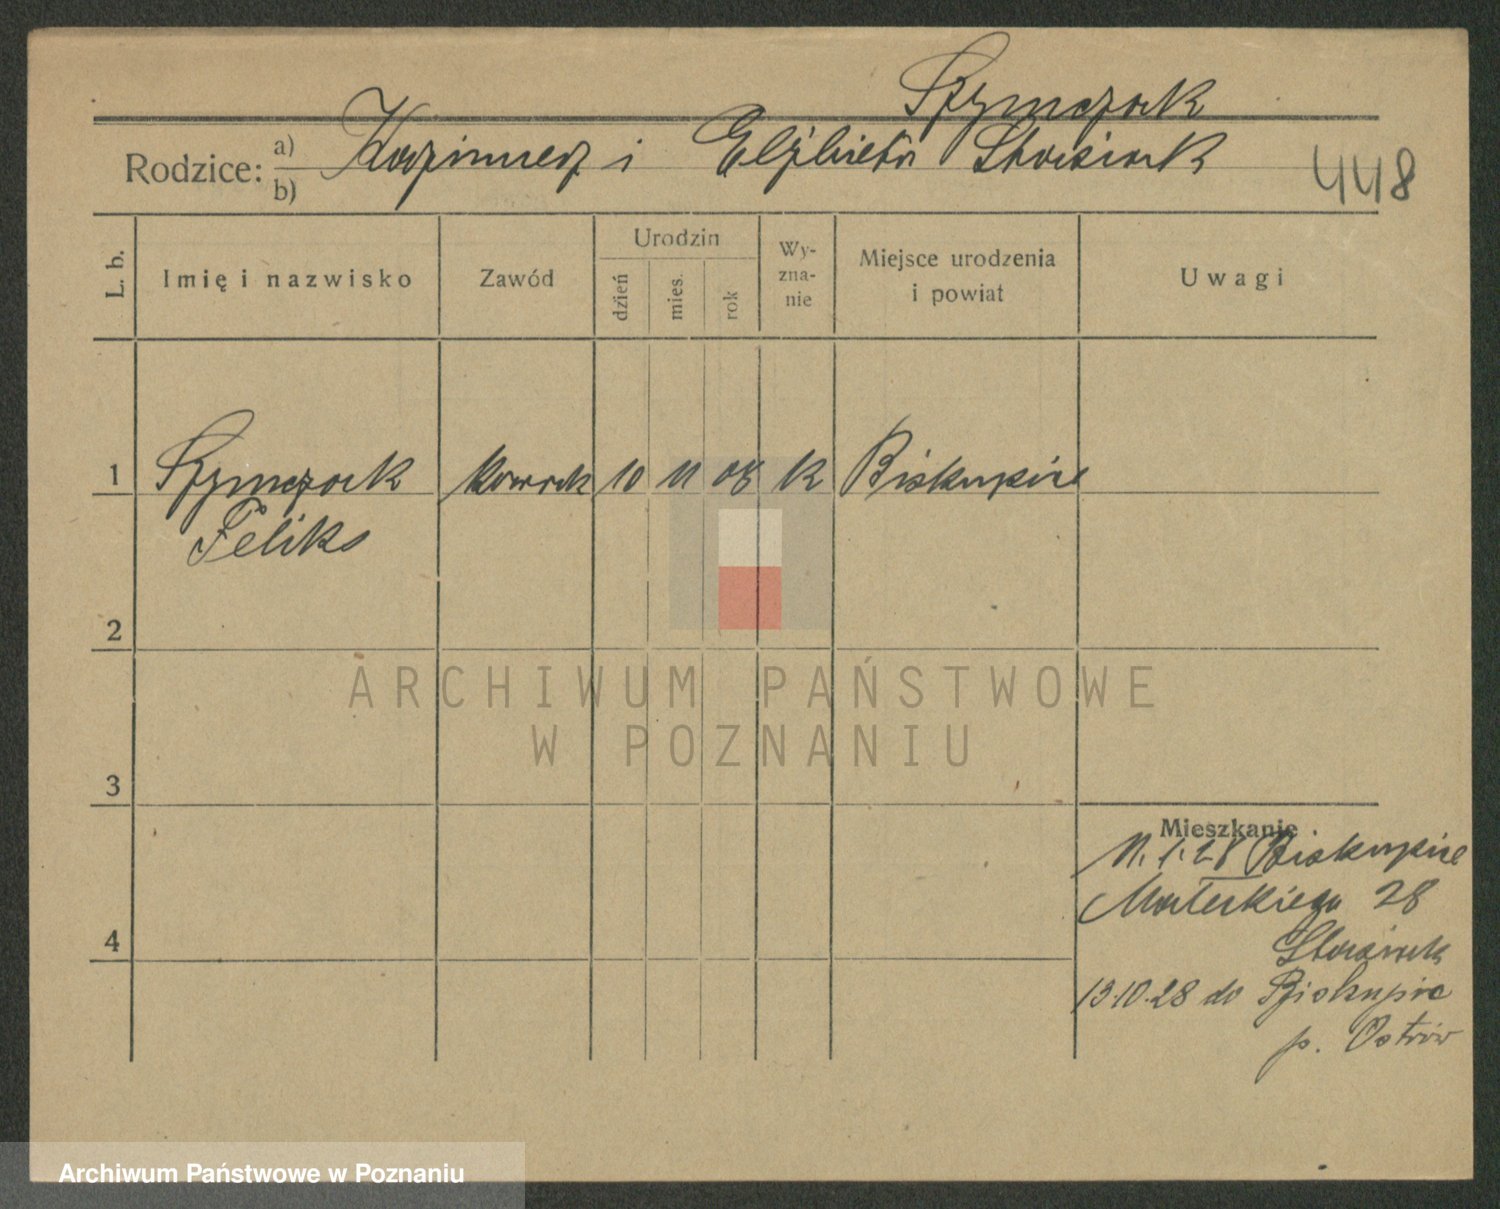 Szymczak
Rodzice: a) Kazimierz i Elżbieta Stasiak
b)
448
L. b.
Imię i nazwisko
Zawód
Urodzin
dzień
mies.
rok
Wy-
zna-
nie
Miejsce urodzenia
i powiat
Uwagi
1 Szymczak 10 11 08 K Biskupice
Feliks
2
3
4
Mieszkanie
11.1.28 Biskupice
28
Stasiak
13.10.28 do Biskupic
p. Ostrów
ARCHIWUM PAŃSTWOWE
W POZNANIU
Archiwum Państwowe w Poznaniu